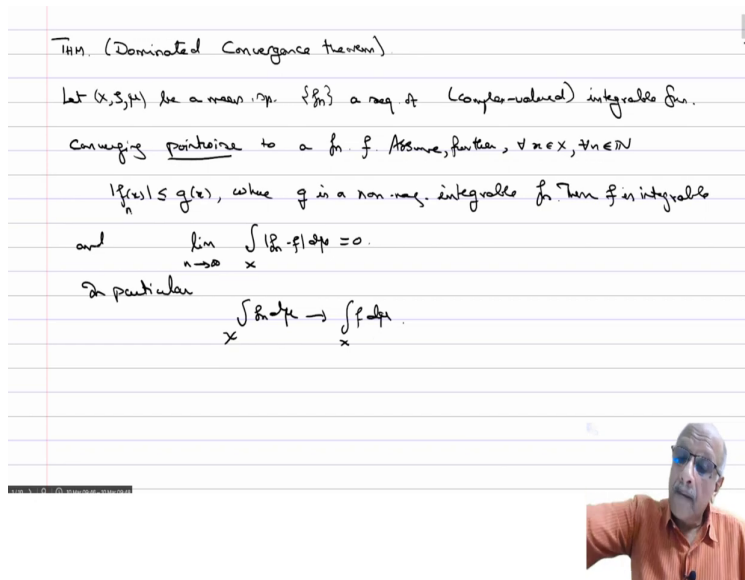 THM. (Dominated Convergence theorem)
Let (X, S, μ) be a meas. sp. {fn} a seq. of (complex-valued) integrable fns.
converging pointwise to a fn. f. Assume, further, ∀ x ∈ X, ∀ n ∈ ℕ
|fn(x)| ≤ g(x), where g is a non-neg. integrable fn. Then f is integrable
and lim n→∞ ∫X |fn - f| dμ = 0.
In particular
∫X fn dμ → ∫X f dμ.